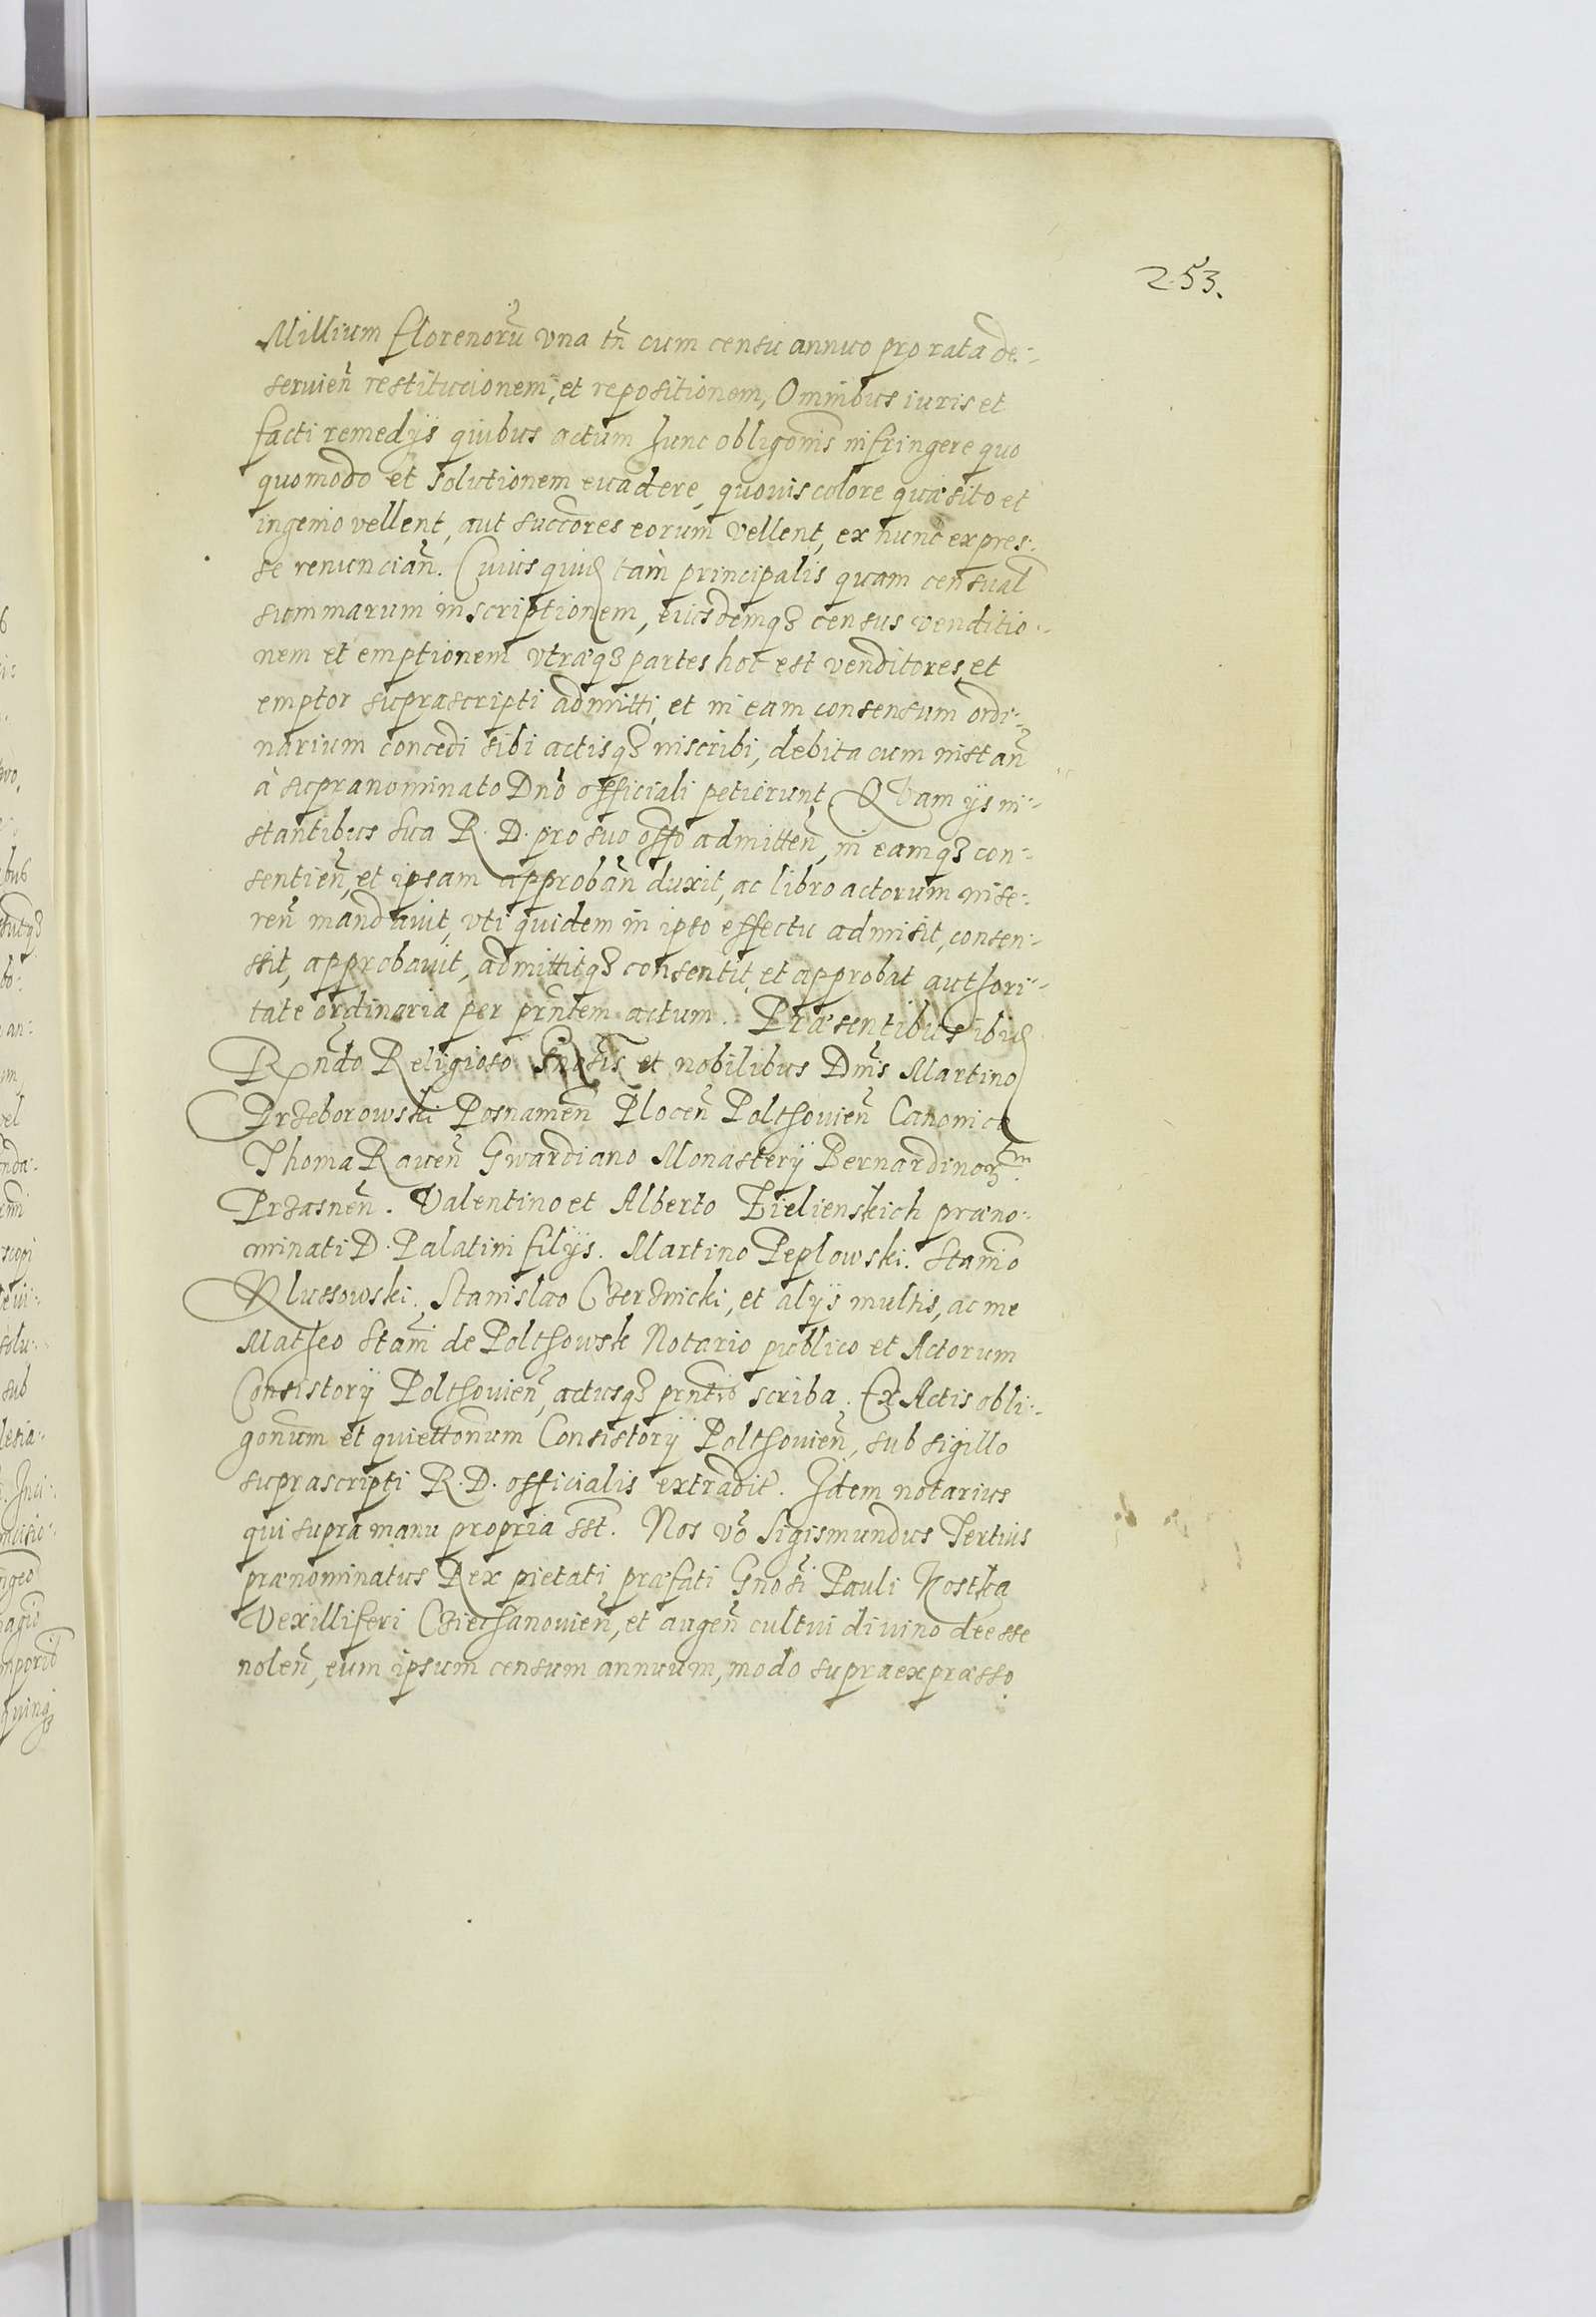 253.
Millium florenorũ vna tñ cum censu annuo pro rata de-
seruieñ restitucionem, et repositionem, Omnibus iuris et
facti remedijs quibus actum hunc obligonis infringere quo
quomodo et solutionem euadere, quouis colore quæsito et
ingenio vellent, aut succores eorum vellent, ex nunc expres-
se renuncian̄. Cuius quid tam principalis quam censual
summarum inscriptionem, eiusdemq3 census venditio-
nem et emptionem vtræq3 partes hoc est venditores et
emptor suprascripti admitti, et in eam consensum ordi-
narium concedi sibi actisq3 inscribi, debita cum instañ
à supranominato Dno officiali petierunt, Quam ijs in-
stantibus Sua R. D. pro suo offo admitteñ, in eamq3 con-
sentieñ, et ipsam approbañ duxit, ac libro actorum inse-
reñ mandauit, vti quidem in ipso effectu admisit, consen-
sit, approbauit, admittitq3 consentit, et approbat authori-
tate ordinaria per prñtem actum. Præsentibus ibid
Rndo Religioso Gnosis et nobilibus Dnis Martino
Przeborowski Posnanieñ Ploceñ Polthouieñ Canonico
Thoma Raueñ Gwardiano Monasterij Bernardinorum
Przasneñ. Valentino et Alberto Zielienskich præno-
minati D. Palatini filijs. Martino Peplowski. Stanio
Klussowski, Stanislao Czerznicki, et alijs multis, ac me
Matheo Stañ de Polthowsk Notario publico et Actorum
Consistorij Polthouieñ, actusq3 prñtis scriba. Ex Actis obli-
gonum et quiettonum Consistorij Polthouieñ, sub sigillo
suprascripti R. D. officialis extradit. Idem notarius
qui supra manu propria sst. Nos vo Sigismundus Tertius
prænominatus Rex pietati præfati Gnosi Pauli Kostka
Vexilliferi Cziechanouieñ, et augeñ cultui diuino deesse
noleñ, eum ipsum censum annuum, modo supraexpræsso